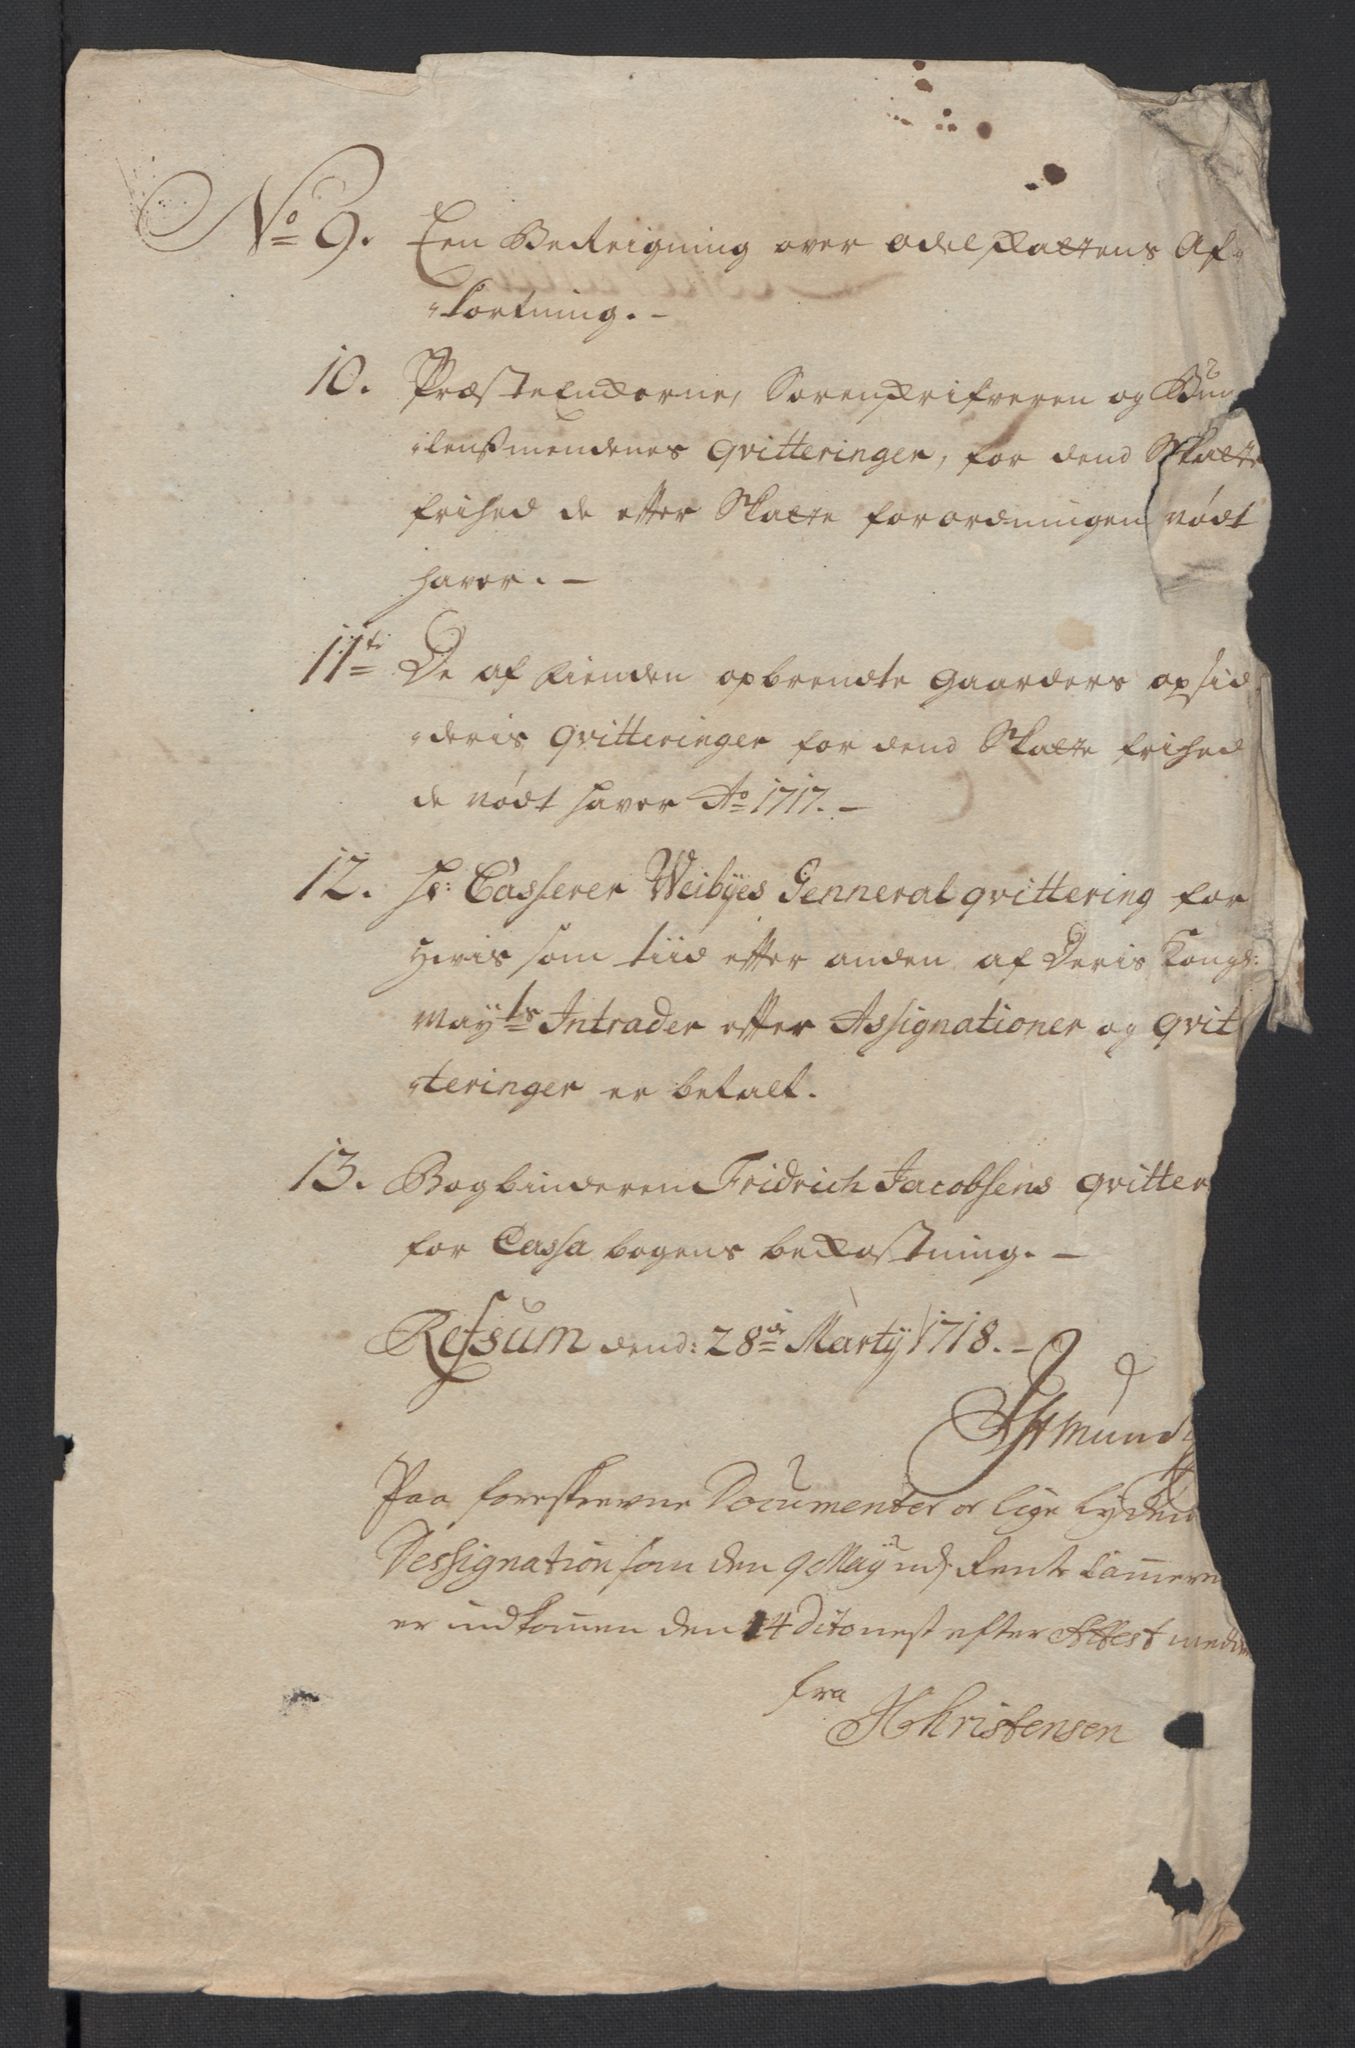 No 9. Een Beregning over Odelskattens Af-
kortning. -
10. Præsteenkerne, Sorenskrifveren og
lensmendenes qvitteringer, for dend Skatte
frihed de efter Skatte forordningen nødt
haver. -
11te De af Fienden opbrendte gaarders opsid-
deris qvitteringer for dend Skatte frihed
de nødt haver Ao 1717. -
12. Hr: Casserer Weibyes Genneral qvittering for
hvis som tiid efter anden af Deris Kongl:
Mayts Intrader efter Assignationer og qvit-
teringer er betalt.
13. Bogbinderen Fridrich Jacobsens qvitter
for Cassa bogens bekostning. -
Refsum dend: 28de Marty 1718. -
Paa foreskrevne Documenter er lige lydend
Dessignation som den 9 May udj Rente Cammeret
er indkommen den 14 Dito nest efter Attest
fra
HChristensen